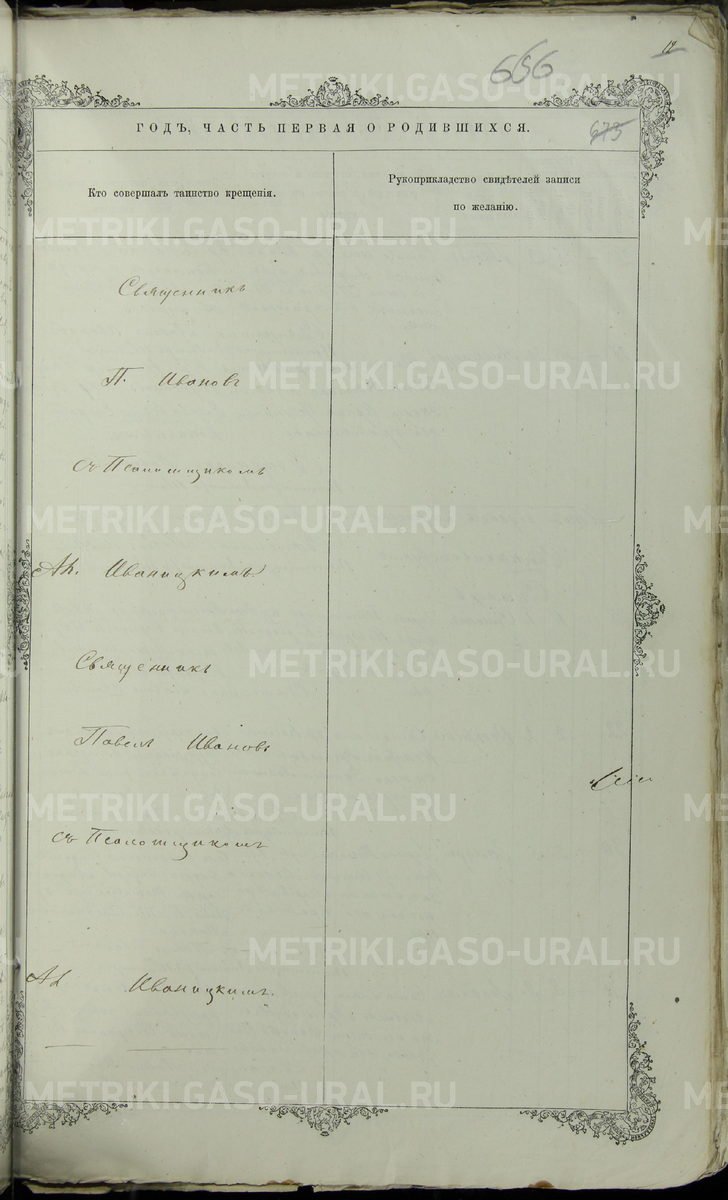 12
656
ГОДЪ, ЧАСТЬ ПЕРВАЯ О РОДИВШИХСЯ.
673
Кто совершалъ таинство крещенія.
Рукоприкладство свидѣтелей записи
по желанію.
Священникъ
П. Ивановъ
съ Псаломщикомъ
Ал. Иваницкимъ
Священникъ
Павелъ Ивановъ
съ Псаломщикомъ
Ал Иваницкимъ.
METRIKI.GASO-URAL.RU